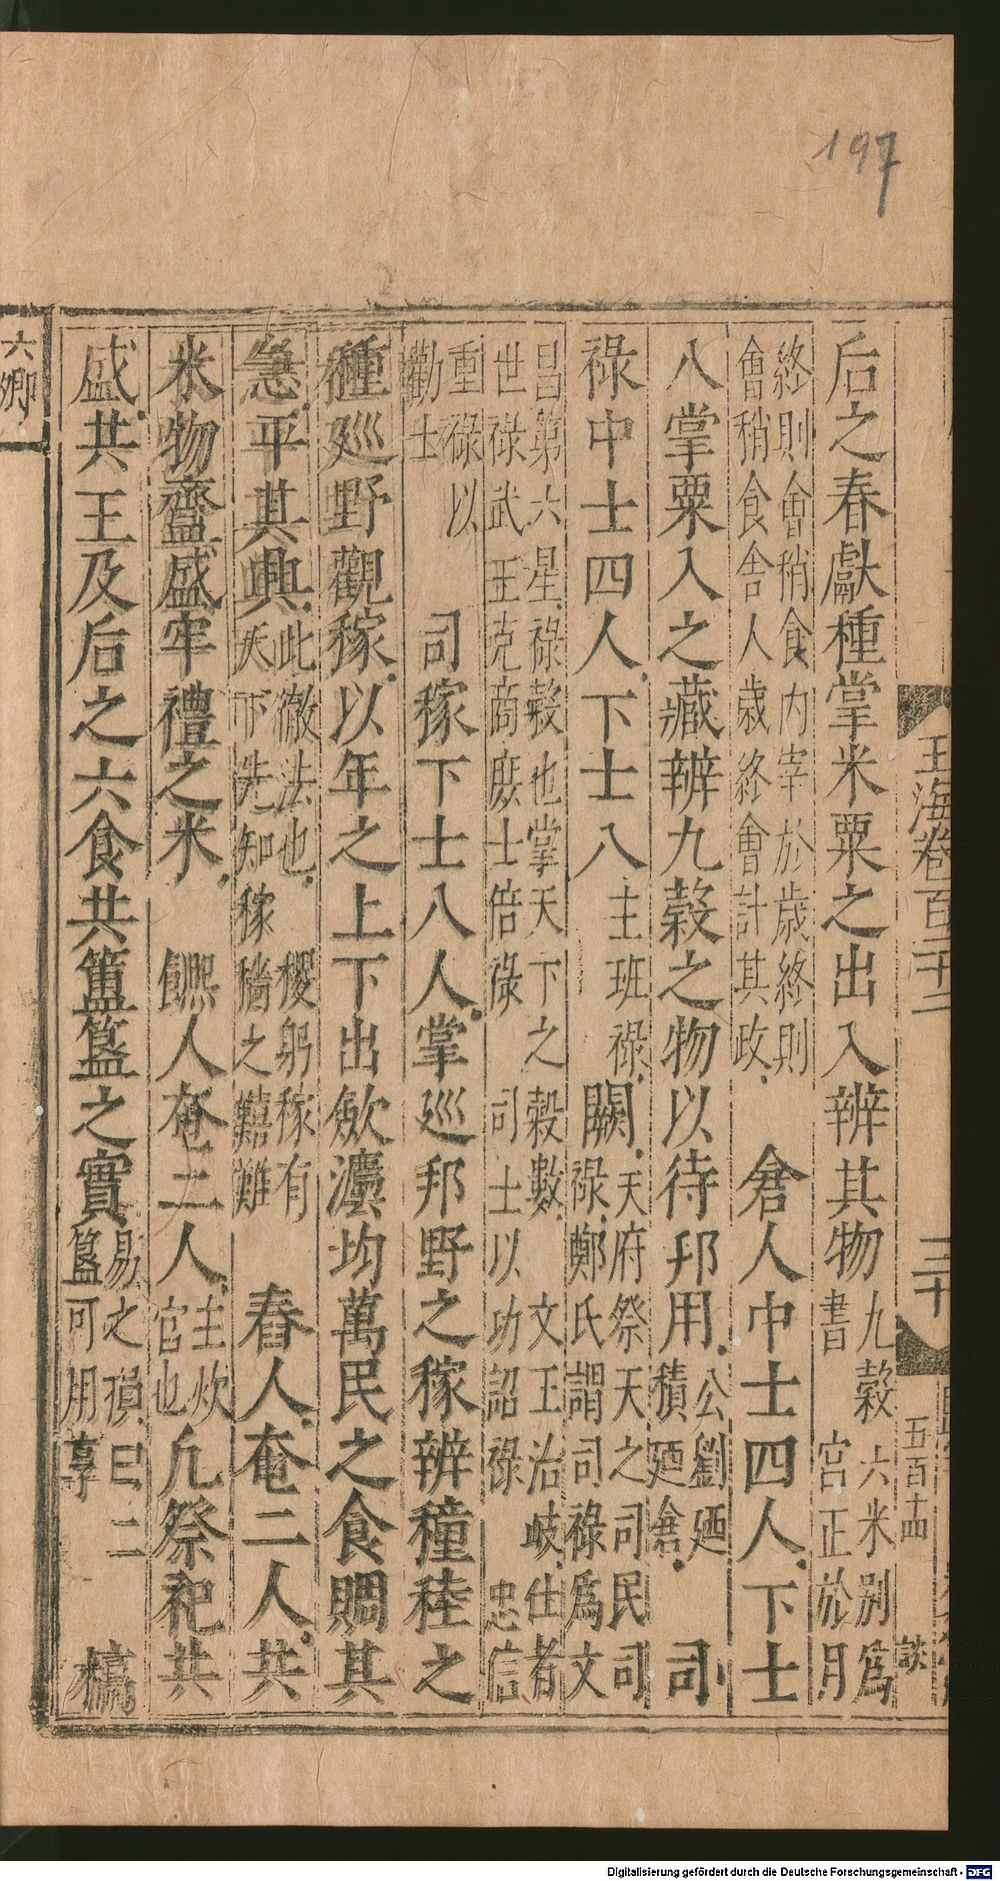 197
玉海卷百二十二
三十
五百十四
談
后之春獻種掌米粟之出入辨其物九穀六米别爲書 宫正於月
終則會稍食内宰於歲終則會稍食舎人歲終會計其政 倉人中士四人下士
八掌粟入之藏辨九穀之物以待邦用公劉廼積廼倉 司
祿中士四人下士八主班祿闕天府祭天之司民司祿鄭氏謂司祿爲文
昌第六星祿穀也掌天下之穀數 文王治岐仕者世祿武王克商庶士倍祿 司士以功詔祿 忠信
重祿以勸士 司稼下士八人掌巡邦野之稼辨穜稑之
種巡野觀稼以年之上下出斂灋均萬民之食賙其
急平其興此徹法也 稷躬稼有天下先知稼穡之艱難 舂人奄二人共
米物齍盛牢禮之米 饎人奄二人主炊官也凡祭祀共
盛共王及后之六食共簠簋之實易之損曰二簋可用享 槁
六卿
Digitalisierung gefördert durch die Deutsche Forschungsgemeinschaft - DFG